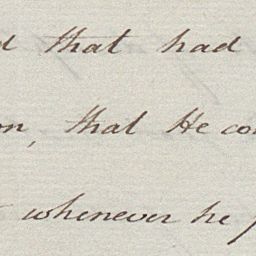 that had
that He
whenever he